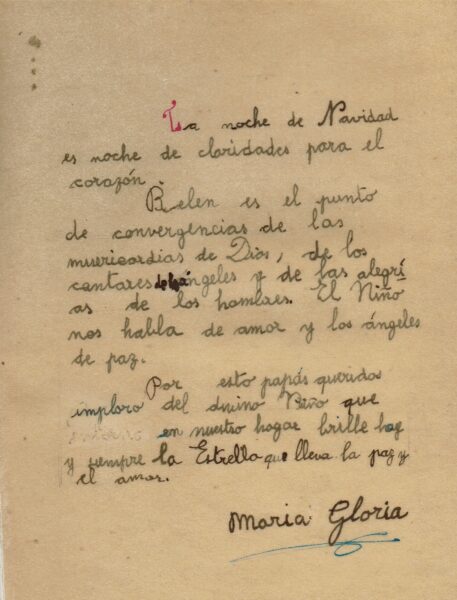 La noche de Navidad
es noche de claridades para el
corazón.
Belen es el punto
de convergencias de las
misericordias de Dios, de los
cantares de los ángeles y de las alegrí
as de los hombres. El Niño
nos habla de amor y los ángeles
de paz.
Por esto papás queridos
imploro del divino Niño que
en nuestro hogar brille hoy
y siempre la Estrella que lleva la paz y
el amor.
Maria Gloria